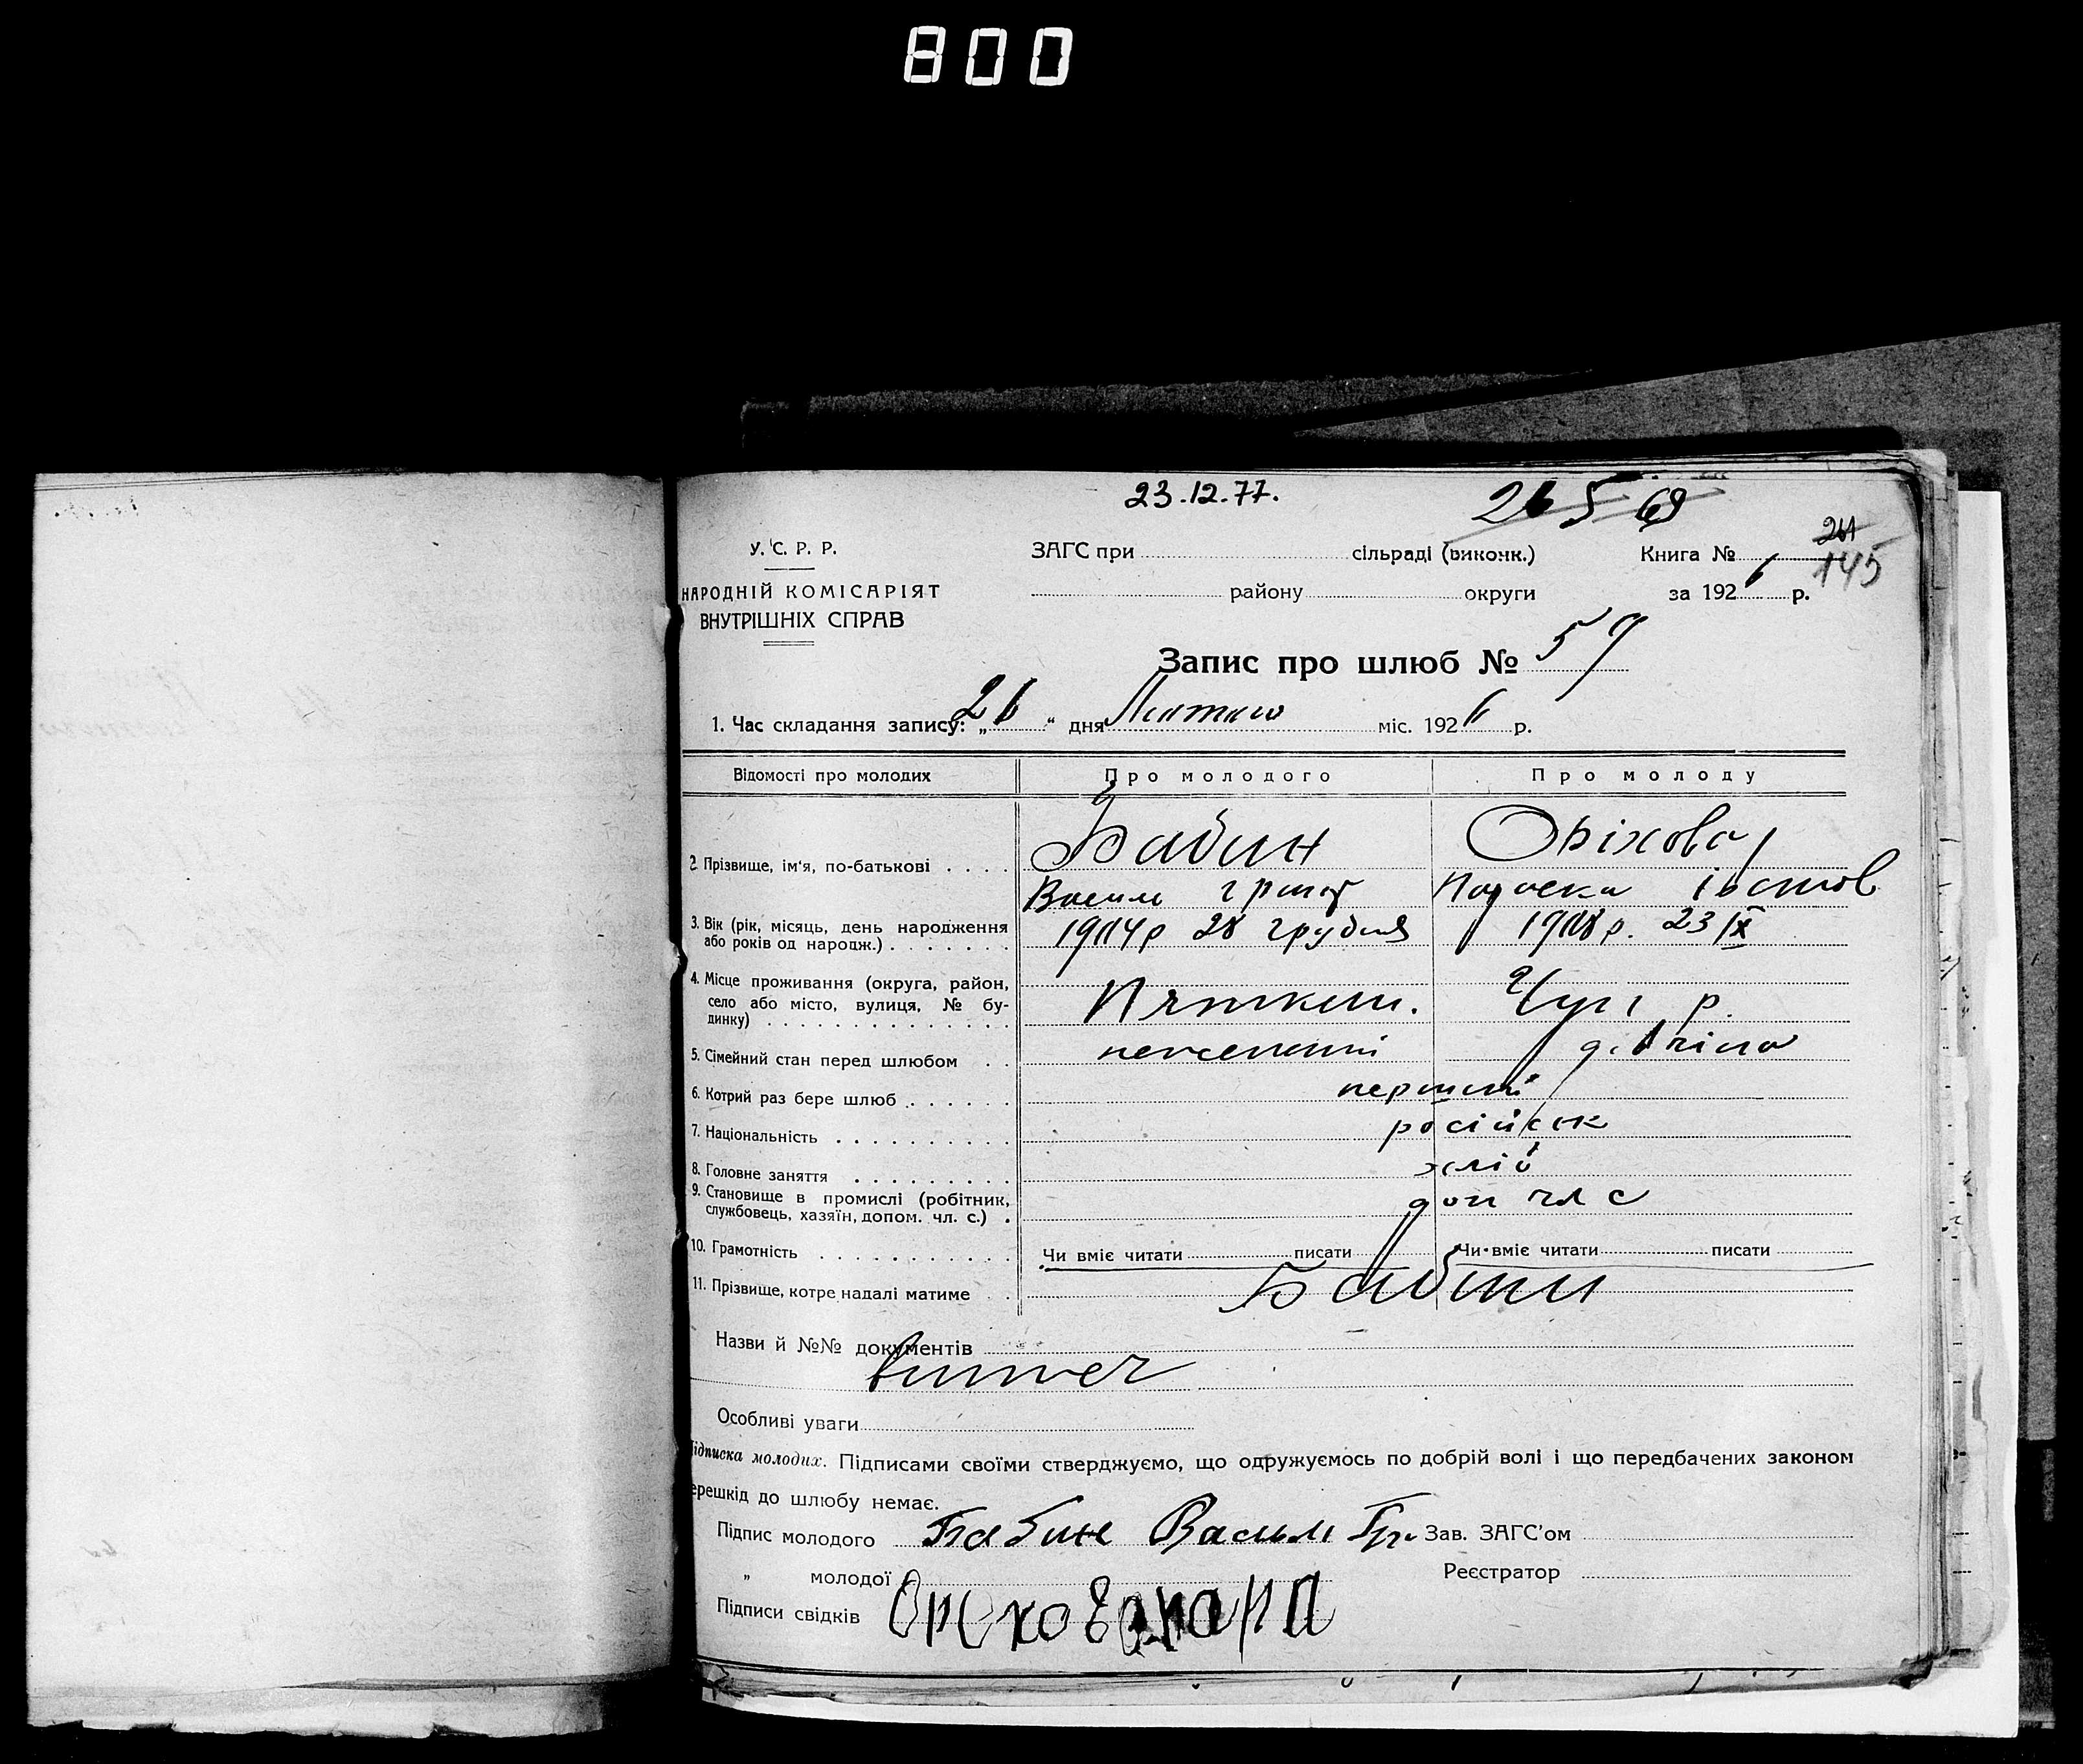 800
23.12.77.
26 5 69
У. С. Р. Р.
ЗАГС при сільраді (виконк.) Книга №
261
145
НАРОДНІЙ КОМІСАРІЯТ
району округи за 1926 р.
ВНУТРІШНІХ СПРАВ
Запис про шлюб № 59
1. Час складання запису: „26" дня Лютого міс. 1926 р.
Відомості про молодих Про молодого Про молоду
2. Прізвище, ім'я, по-батькові . . . . Бабин Оріхова
Василь Григ Параска
3. Вік (рік, місяць, день народження або років од народж.) . . . . . . . 1904р 28 грудня 1908 р. 23 IX
4. Місце проживання (округа, район, село або місто, вулиця, № будинку) . . . . . . . . . . . . . . р.
5. Сімейний стан перед шлюбом . . нежонатий дівчина
6. Котрий раз бере шлюб . . . . . . перший
7. Національність . . . . . . . . . . російськ
8. Головне заняття . . . . . . . . . хліб
9. Становище в промислі (робітник, службовець, хазяїн, допом. чл. с.) . доп чл с
10. Грамотність . . . . . . . . . . . Чи вміє читати писати Чи вміє читати писати
11. Прізвище, котре надалі матиме . . Бабини
Назви й №№ документів
Особливі уваги
ідписка молодих. Підписами своїми стверджуємо, що одружуємось по добрій волі і що передбачених законом
ерешкід до шлюбу немає.
Підпис молодого Бабин Василь Гр. Зав. ЗАГС'ом
„ молодої Реєстратор
Підписи свідків